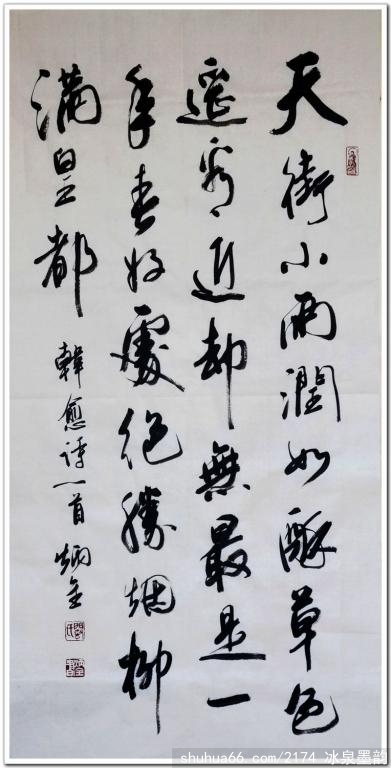 天街小雨潤如酥草色
遥看近却無最是一
年春好處绝勝烟柳
满皇都
韓愈诗一首 炳全
shuhua66.com/2174 冰泉墨韵